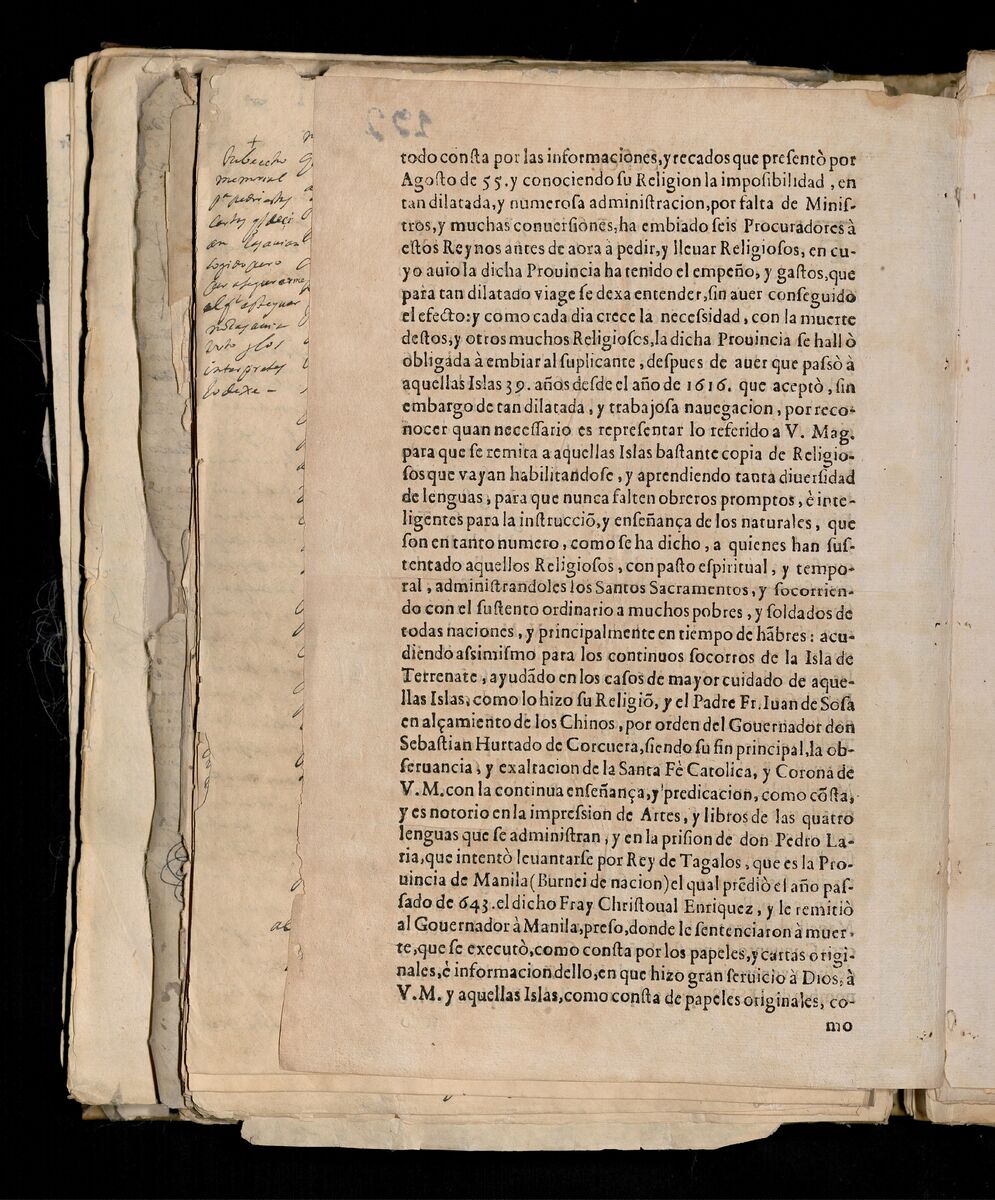 todo consta por las informaciones, y recados que presentò por
Agosto de 55. y conociendo su Religion la imposibilidad, en
tan dilatada, y numerosa administracion, por falta de Minis-
tros, y muchas conuersiones, ha embiado seis Procuradores à
estos Reynos antes de aora à pedir, y lleuar Religiosos, en cu-
yo auio la dicha Prouincia ha tenido el empeño, y gastos, que
para tan dilatado viage se dexa entender, sin auer conseguido
el efecto: y como cada dia crece la necessidad, con la muerte
destos, y otros muchos Religioses, la dicha Prouincia se hallò
obligada à embiar al suplicante, despues de auer que passò à
aquellas Islas 39. años desde el año de 1616. que aceptò, sin
embargo de tan dilatada, y trabajosa nauegacion, por reco-
nocer quan necessario es representar lo referido a V. Mag.
para que se remita a aquellas Islas bastante copia de Religio-
sos que vayan habilitandose, y aprendiendo tanta diuersidad
de lenguas, para que nunca falten obreros promptos, è inte-
ligentes para la instrucciõ, y enseñança de los naturales, que
son en tanto numero, como se ha dicho, a quienes han sus-
tentado aquellos Religiosos, con pasto espiritual, y tempo-
ral, administrandoles los Santos Sacramentos, y socorrien-
do con el sustento ordinario a muchos pobres, y soldados de
todas naciones, y principalmente en tiempo de hãbres: acu-
diendo assimismo para los continuos socorros de la Isla de
Terrenate, ayudãdo en los casos de mayor cuidado de aque-
llas Islas, como lo hizo su Religiõ, y el Padre Fr. Iuan de Sosa
en alçamiento de los Chinos, por orden del Gouernador don
Sebastian Hurtado de Corcuera, siendo su fin principal, la ob-
seruancia, y exaltacion de la Santa Fè Catolica, y Corona de
V. M. con la continua enseñança, y predicacion, como cõsta,
y es notorio en la impression de Artes, y libros de las quatro
lenguas que se administran, y en la prision de don Pedro La-
ria, que intentò leuantarse por Rey de Tagalos, que es la Pro-
uincia de Manila (Burnei de nacion) el qual prẽdiò el año pas-
sado de 643. el dicho Fray Christoual Enriquez, y le remitiò
al Gouernador à Manila, preso, donde le sentenciaron à muer-
te, que se executò, como consta por los papeles, y cartas origi-
nales, è informacion dello, en que hizo gran seruicio à Dios, à
V. M. y aquellas Islas, como consta de papeles originales, co-
mo
memorial
interpretes